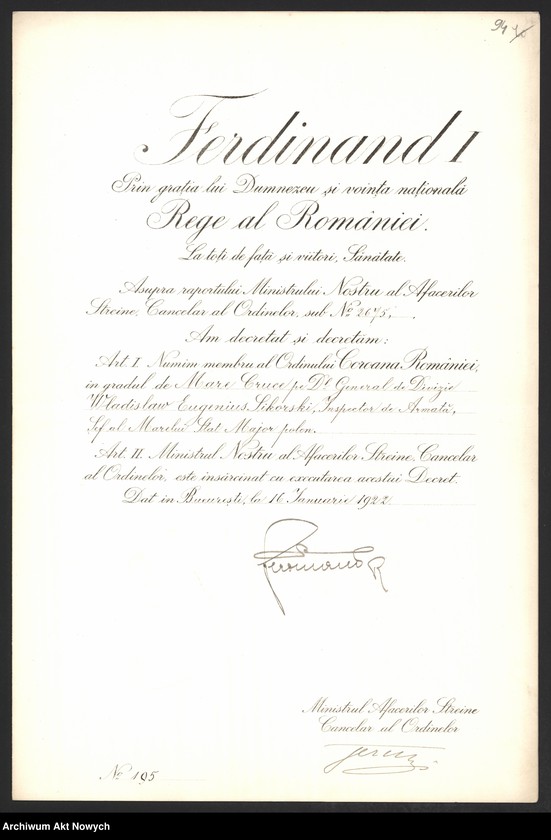 94
Ferdinand I
Prin grația lui Dumnezeu și voința națională
Rege al României.
La toți de față și viitori, Sănătate.
Asupra raportului Ministrului Nostru al Afacerilor
Streine, Cancelar al Ordinelor, sub No 2675,
Am decretat și decretăm:
Art. I. Numim membru al Ordinului Coroana României,
în gradul de Mare Cruce pe Dl General de Divizie
Wladislaw Eugenius Sikorski, Inspector de Armată,
Șef al Marelui Stat Major polon.
Art. II. Ministrul Nostru al Afacerilor Streine, Cancelar
al Ordinelor, este însărcinat cu executarea acestui Decret.
Dat in București, la 16 Ianuarie 1922
Ferdinand R
Ministrul Afacerilor Streine
Cancelar al Ordinelor
No 195
Archiwum Akt Nowych